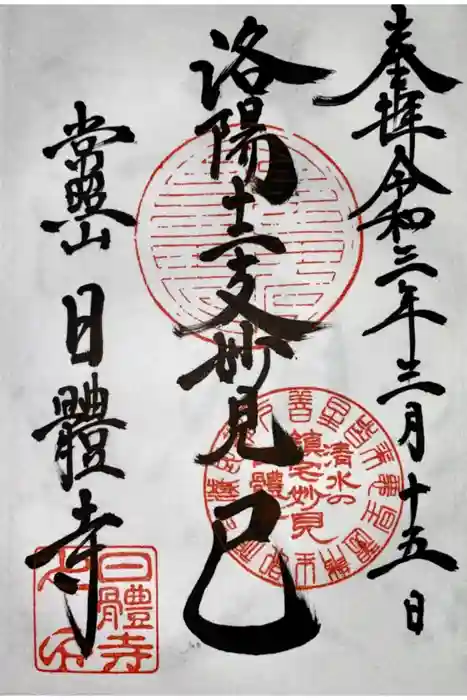 奉拝 令和三年三月十五日
洛陽十二支妙見 巳
常照山 日體寺
清水の
鎮宅妙見
日體寺
日體寺